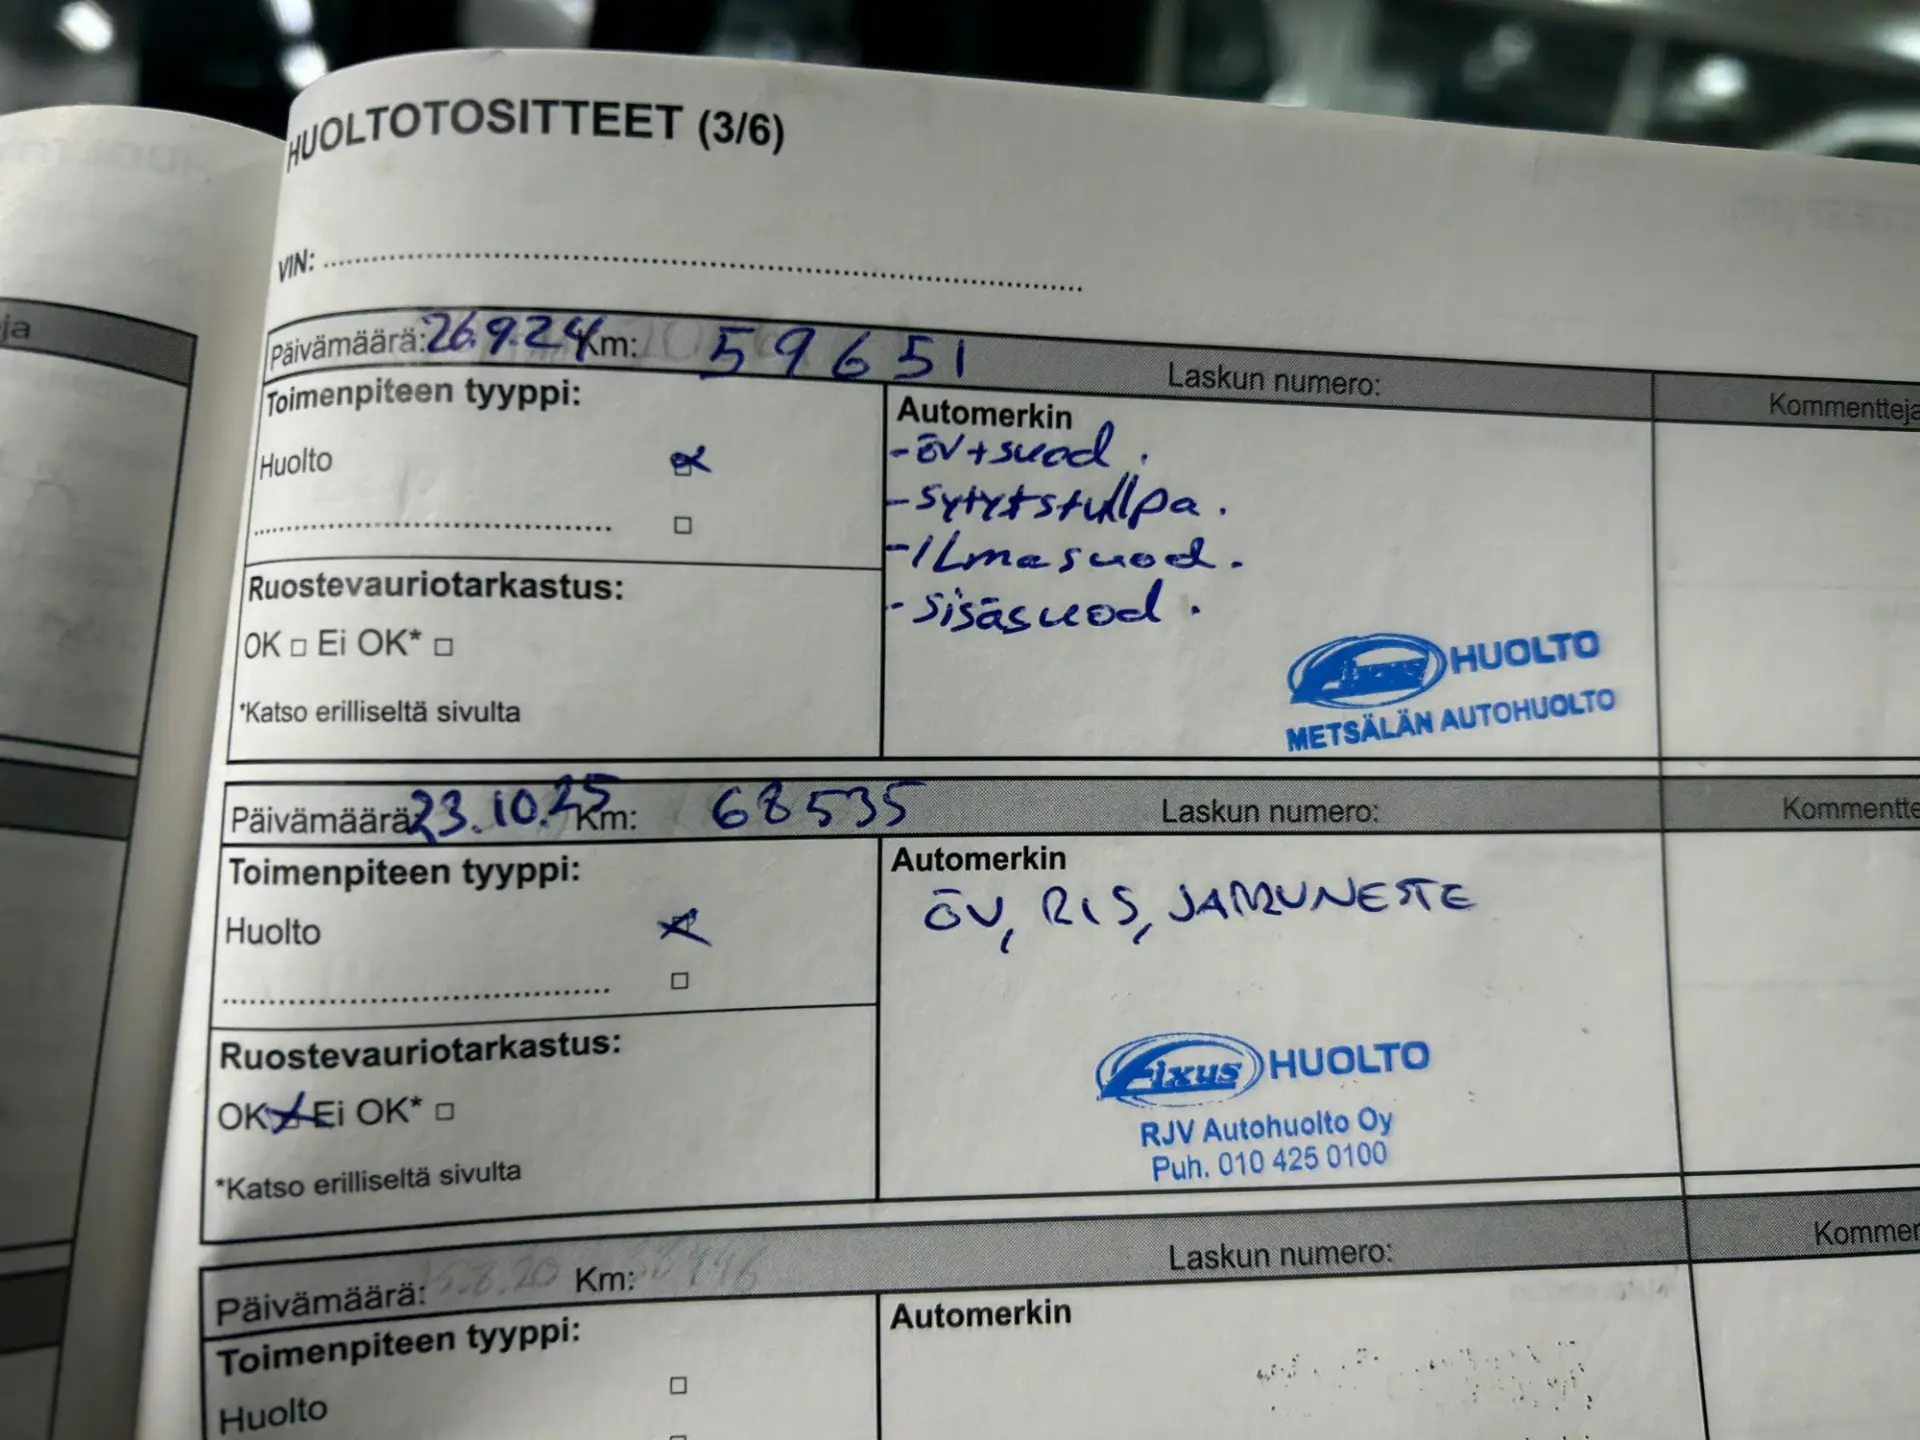 HUOLTOTOSITTEET (3/6)
VIN:
Päivämäärä: 26.9.24 Km: 59651 Laskun numero: Kommentteja
Toimenpiteen tyyppi:
Automerkin
Huolto
-öv+suod.
-sytytstullpa.
-ilmasuod.
-sisäsuod.
Ruostevauriotarkastus:
OK Ei OK*
*Katso erilliseltä sivulta
Fixus HUOLTO
METSÄLÄN AUTOHUOLTO
Päivämäärä: 23.10.25 Km: 68535 Laskun numero: Kommentte
Toimenpiteen tyyppi:
Automerkin
Huolto
ÖV, RIS, JARRUNESTE
Ruostevauriotarkastus:
OK Ei OK*
*Katso erilliseltä sivulta
Fixus HUOLTO
RJV Autohuolto Oy
Puh. 010 425 0100
Päivämäärä: Km: Laskun numero: Kommen
Toimenpiteen tyyppi:
Automerkin
Huolto
ja